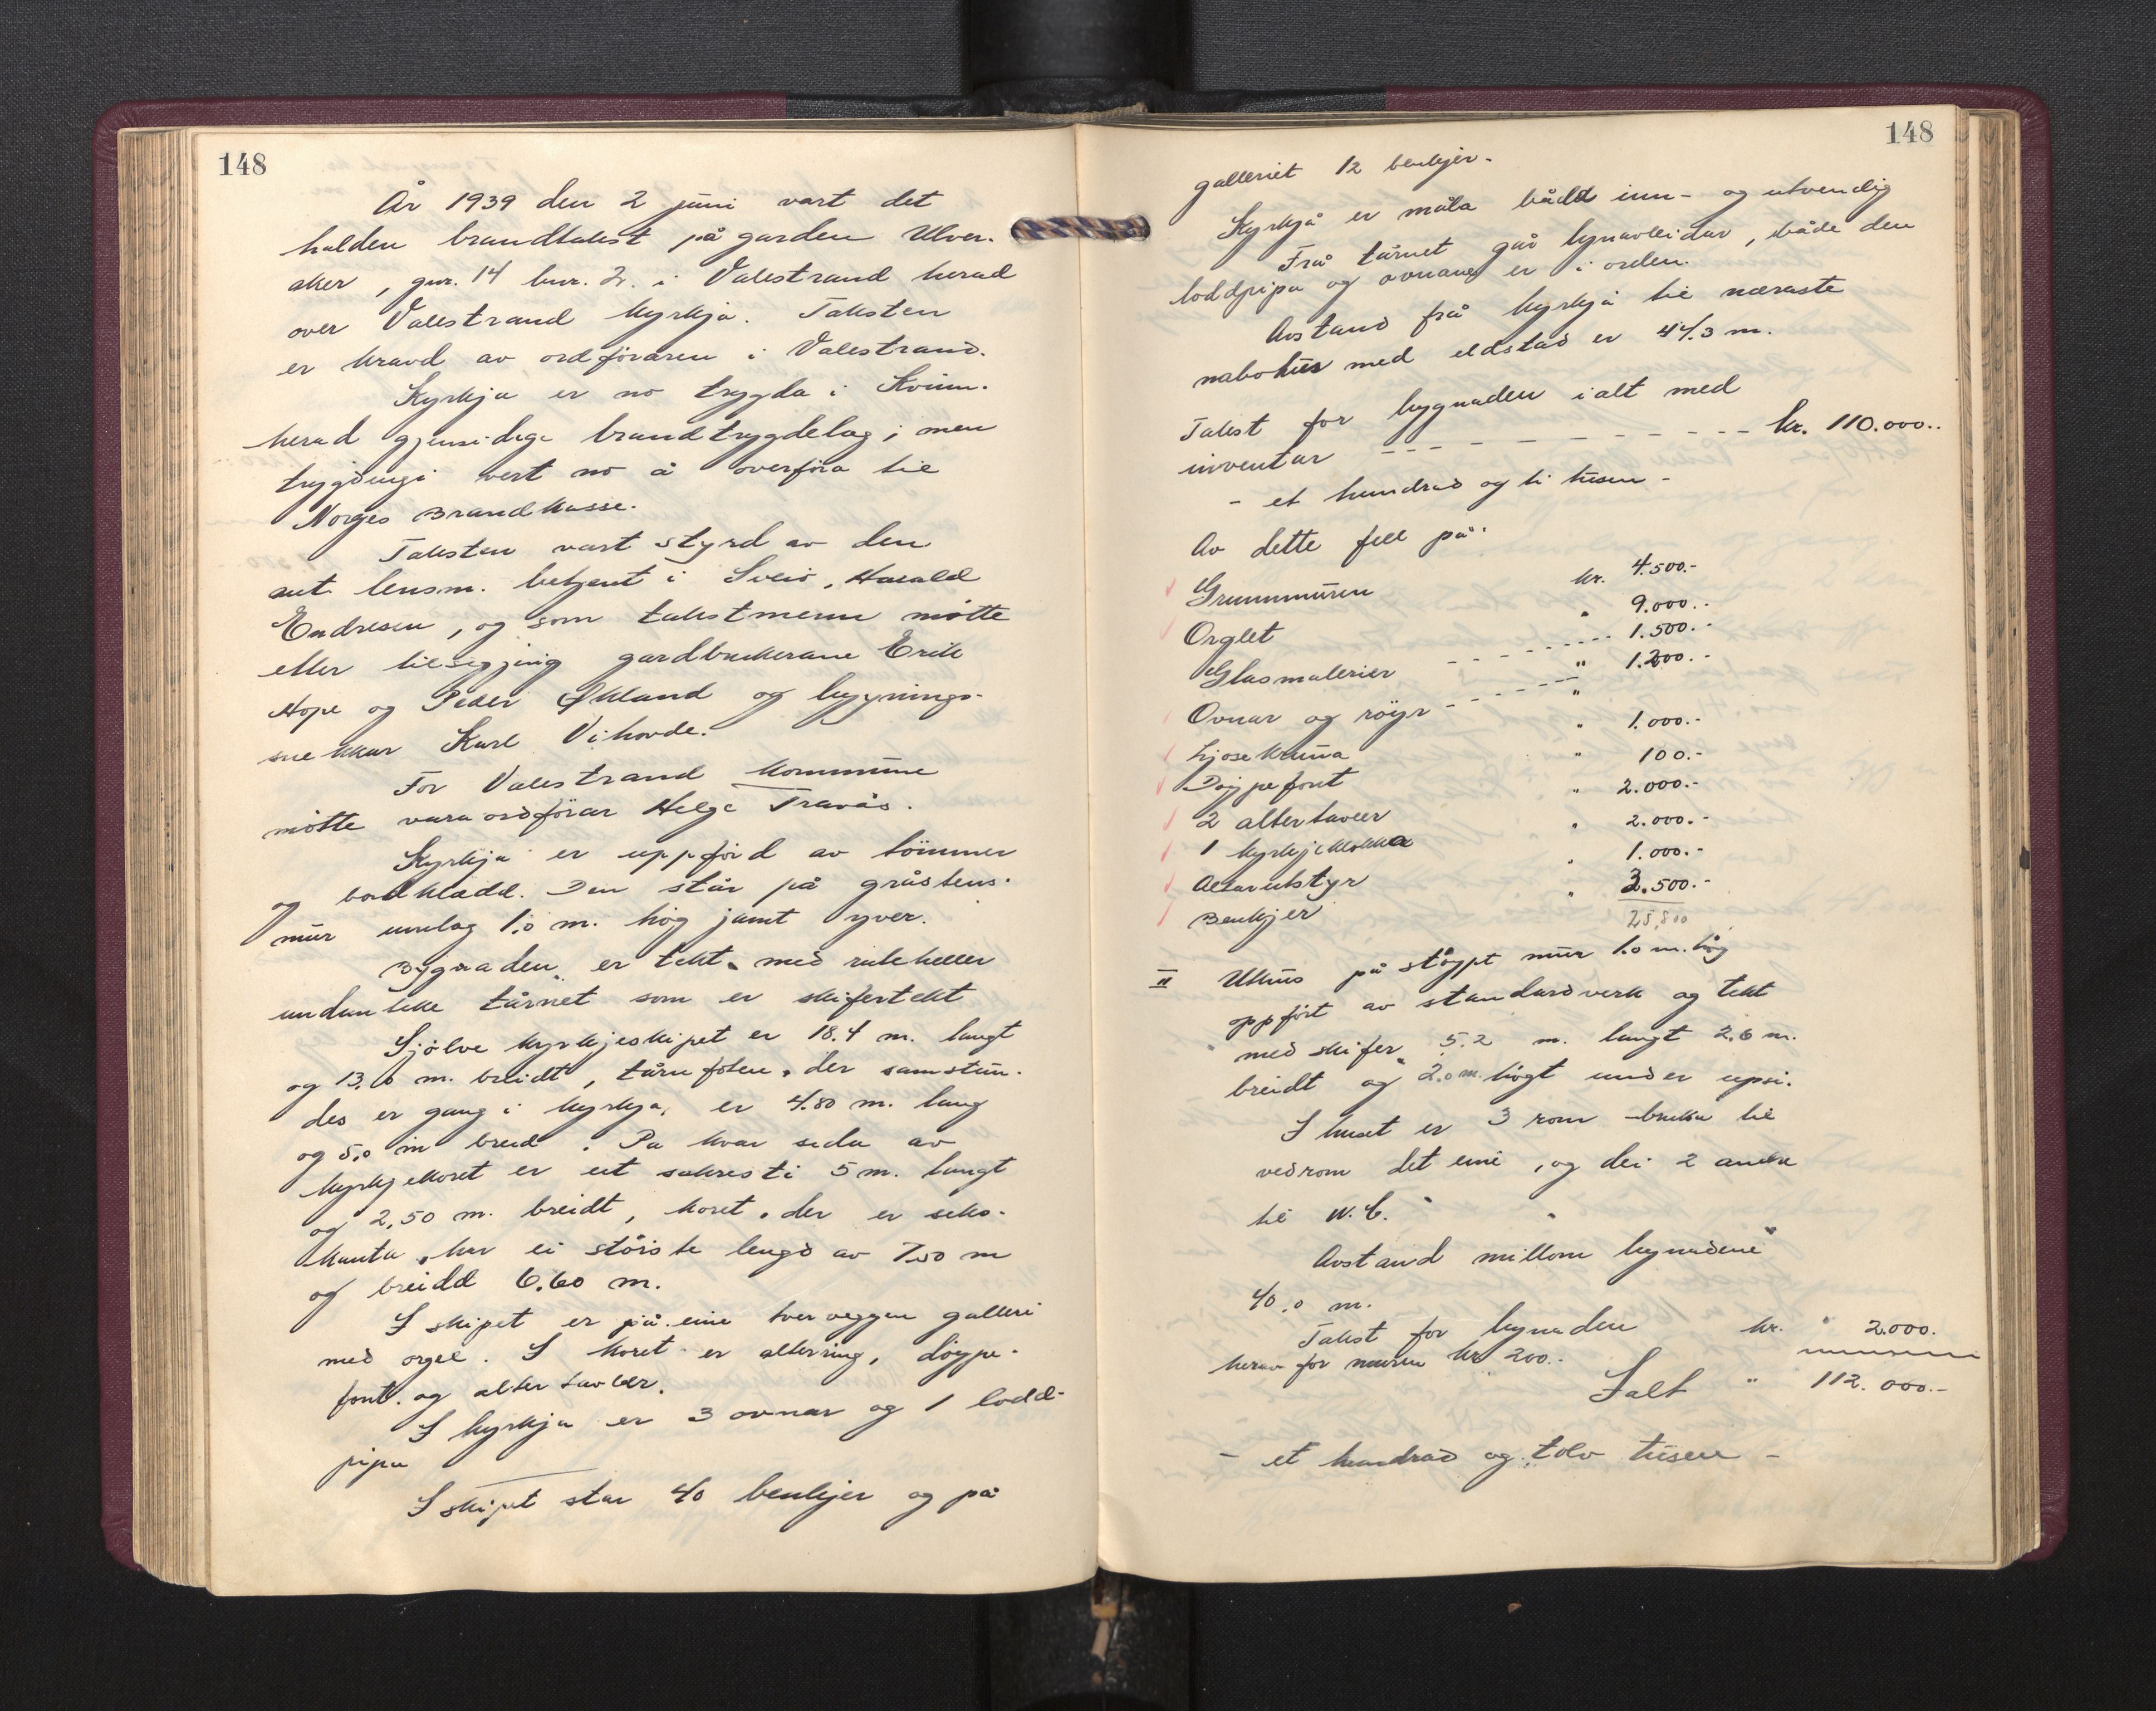 148
År 1939 den 2 juni vart det
halden brandtakst på garden Ulver-
aker, gnr. 14 bnr. 2. i Valestrand herad
over Valestrand kyrkja. Taksten
er kravd av ordföraren i Valestrand.
Kyrkja er no trygda i Kvinn-
herad gjensidige brandtrygdelag, men
trygdingi vert no å overföra til
Norges Brandkasse.
Taksten vart styrd av den
aut. lensm. betjent i Sveio, Harald
Endresen, og som takstmenn møtte
etter tilsegjing gardbrukerane Erik
Hope og Peder Økland og bygnings-
snekkar Karl Vihovde.
For Valestrand kommune
møtte varaordförar Helge Travås.
Kyrkja er uppförd av tömmer
og bordklædd. Den står på gråsteins-
mur umlag 1,0 m. høg jamt yver.
Bygnaden er tekt med ruteheller
undanteke tårnet som er skifertekt
Sjølve kyrkjeskipet er 18.4 m. langt
og 13,0 m. breidt, tårnfoten, der samstun-
des er gang i kyrkja, er 4.80 m. lang
og 5,0 m breid. Pa kvar sida av
kyrkjekoret er eit sakresti 5 m. langt
og 2,50 m. breidt, koret, der er seks-
kanta, har ei störste lengd av 7.50 m
og breidd 6.60 m.
I skipet er på eine tverveggen galleri
med orgel. I koret er altarring, döype-
font. og altertavler.
I kyrkja er 3 ovnar og 1 lodd-
pipa
I skipet star 40 benkjer og på
148
galleriet 12 benkjer.
Kyrkjå er måla både inn- og utvendig
Frå tårnet går lynavleidar, både den
loddpipa og ovnane er i orden.
Avstand frå kyrkjå til næraste
nabohus med eldstad er 41/.3 m.
Takst for bygnaden ialt med
inventar - - - - - - - - - kr. 110.000..
- et hundrad og ti tusen -
Av dette fell på:
Grunnmuren kr. 4.500.-
Orglet " 9.000.-
Glasmalerier - - - - - - 1.500.-
Ovnar og röyr - - - - - " 1.200.-
Ljosekruna " 1.000.-
Döypefont " 100.-
2 altertavler " 2.000.-
1 kyrkjeklokka " 2.000.-
Altarutstyr " 1.000.-
Benkjer " 3.500.-
25,800
II Uthus på stöypt mur 1.0 m. høg
oppfört av standardverk og tekt
med skifer, 5.2 m. langt 2.6 m.
breidt og 2.0 m. högt under upsi.
I huset er 3 rom - bruka til
vedrom det eine, og dei 2 andre
til W.C.
Avstand millom bygnadene
40,0 m.
Takst for bygnaden kr. " 2.000.
herav for muren kr 200.-
Ialt " 112.000.-
- et hundrad og tolv tusen -